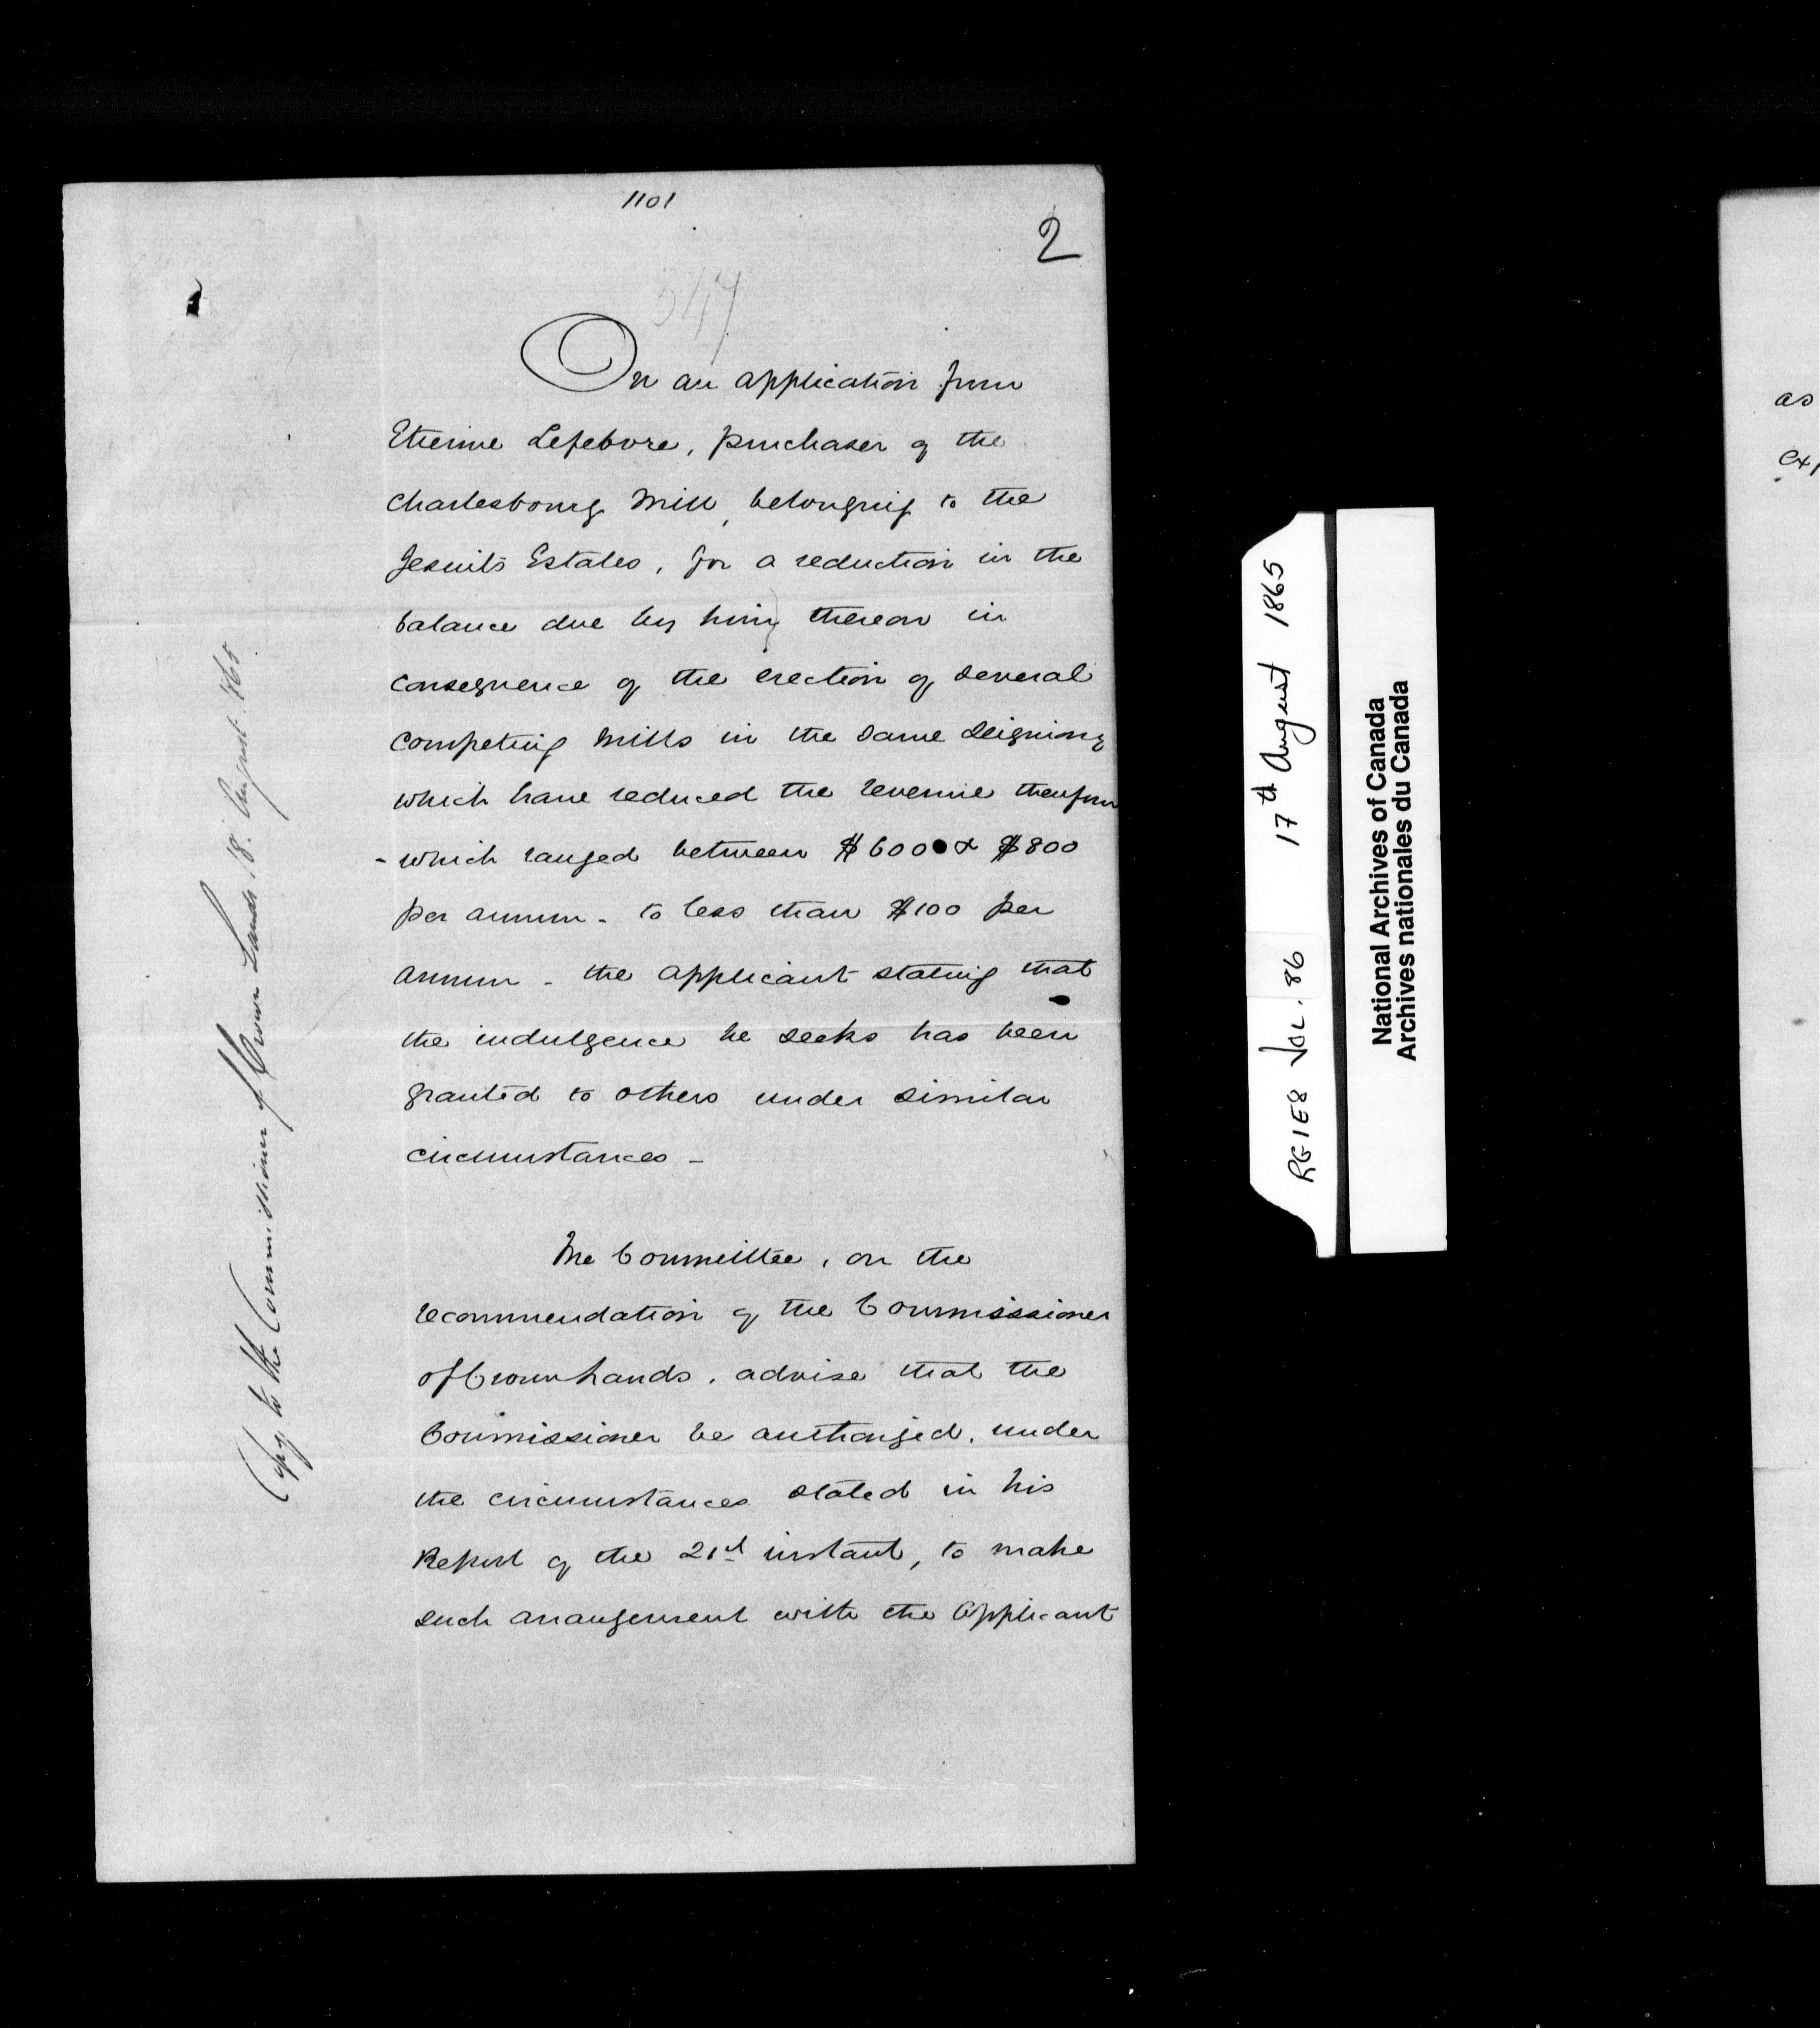 1101
2
547
On an application from
Etienne Lefebvre, purchaser of the
Charlesbourg Mill, belonging to the
Jesuits Estates, for a reduction in the
balance due by him thereon in
consequence of the erection of several
competing mills in the same Seigniory
which have reduced the revenue therefrom
- which ranged between $600 & $800
per annum - to less than $100 per
annum - the applicant stating that
the indulgence he seeks has been
granted to others under similar
circumstances -
The Committee, on the
recommendation of the Commissioner
of Crown Lands, advise that the
Commissioner be authorized, under
the circumstances stated in his
Report of the 21st instant, to make
such arrangement with the Applicant
Copy to the Commissioner of Crown Lands 18. August 1865
RG1E8 VOL. 86 17th August 1865
National Archives of Canada
Archives nationales du Canada
as